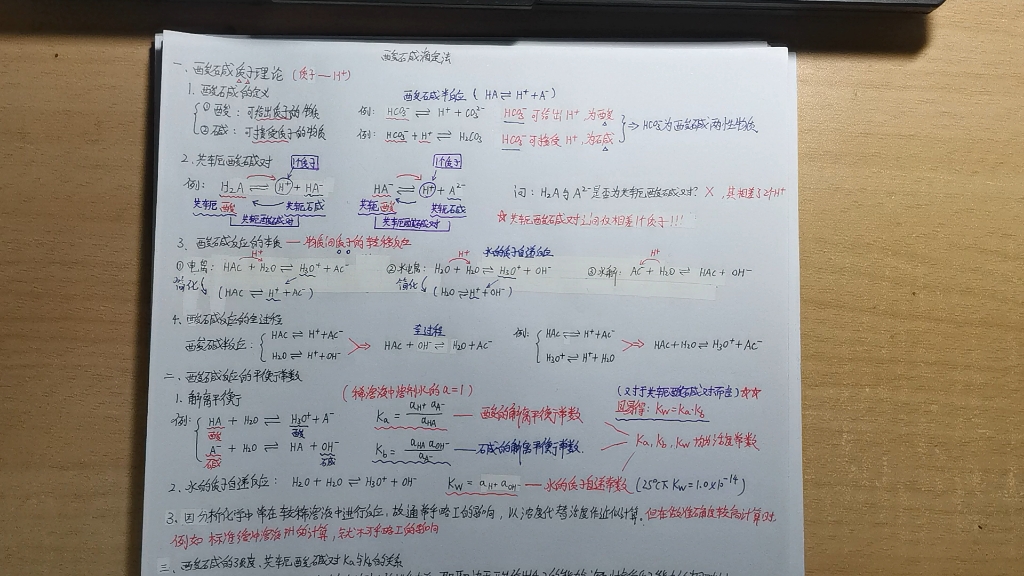 酸碱滴定法
一、酸碱质子理论（质子—H⁺）
1. 酸碱的定义 酸碱半反应（HA⇌H⁺+A⁻）
①酸：可给出质子的物质 例：HCO₃⁻ ⇌ H⁺ + CO₃²⁻ HCO₃⁻可给出H⁺,为酸
②碱：可接受质子的物质 例：HCO₃⁻ + H⁺ ⇌ H₂CO₃ HCO₃⁻可接受H⁺,为碱 ⇒ HCO₃⁻为酸碱两性物质
2. 共轭酸碱对 1个质子 1个质子
例：H₂A ⇌ H⁺ + HA⁻ HA⁻ ⇌ H⁺ + A²⁻ 问：H₂A与A²⁻是否为共轭酸碱对？ ×，其相差了2个H⁺
共轭酸 共轭碱 共轭酸 共轭碱
共轭酸碱对 共轭酸碱对 ☆共轭酸碱对之间仅相差1个质子!!!
3. 酸碱反应的本质 — 物质间质子的转移反应 水的质子自递反应
H⁺ H⁺ H⁺
①电离：HAc + H₂O ⇌ H₃O⁺ + Ac⁻ ②水电离：H₂O + H₂O ⇌ H₃O⁺ + OH⁻ ③水解：Ac⁻ + H₂O ⇌ HAc + OH⁻
简化 (HAc ⇌ H⁺ + Ac⁻) 简化 (H₂O ⇌ H⁺ + OH⁻)
4. 酸碱反应的全过程
酸碱半反应： HAc ⇌ H⁺+Ac⁻ 全过程 例： HAc ⇌ H⁺+Ac⁻
H₂O ⇌ H⁺+OH⁻ HAc + OH⁻ ⇌ H₂O + Ac⁻ H₃O⁺ ⇌ H⁺ + H₂O HAc + H₂O ⇌ H₃O⁺ + Ac⁻
二、酸碱反应的平衡常数
1. 解离平衡 （稀溶液中溶剂水的a=1） （对于共轭酸碱对而言）☆☆
例： HA + H₂O ⇌ H₃O⁺ + A⁻ Ka = aH⁺ aA⁻ / aHA — 酸的解离平衡常数 Kw = Ka·Kb
酸 酸
A⁻ + H₂O ⇌ HA + OH⁻ Kb = aHA aOH⁻ / aA⁻ — 碱的解离平衡常数 Ka, Kb, Kw 均为活度常数
碱 碱
2. 水的质子自递反应： H₂O + H₂O ⇌ H₃O⁺ + OH⁻ Kw = aH⁺ aOH⁻ — 水的质子自递常数 (25℃下 Kw = 1.0×10⁻¹⁴)
3. 因分析化学中常在较稀溶液中进行反应，故通常忽略I的影响，以浓度代替活度作近似计算。但在准确度较高计算时
例如 标准缓冲溶液pH的计算，就不可忽略I的影响
三、酸碱的强度、共轭酸碱对Ka与Kb的关系